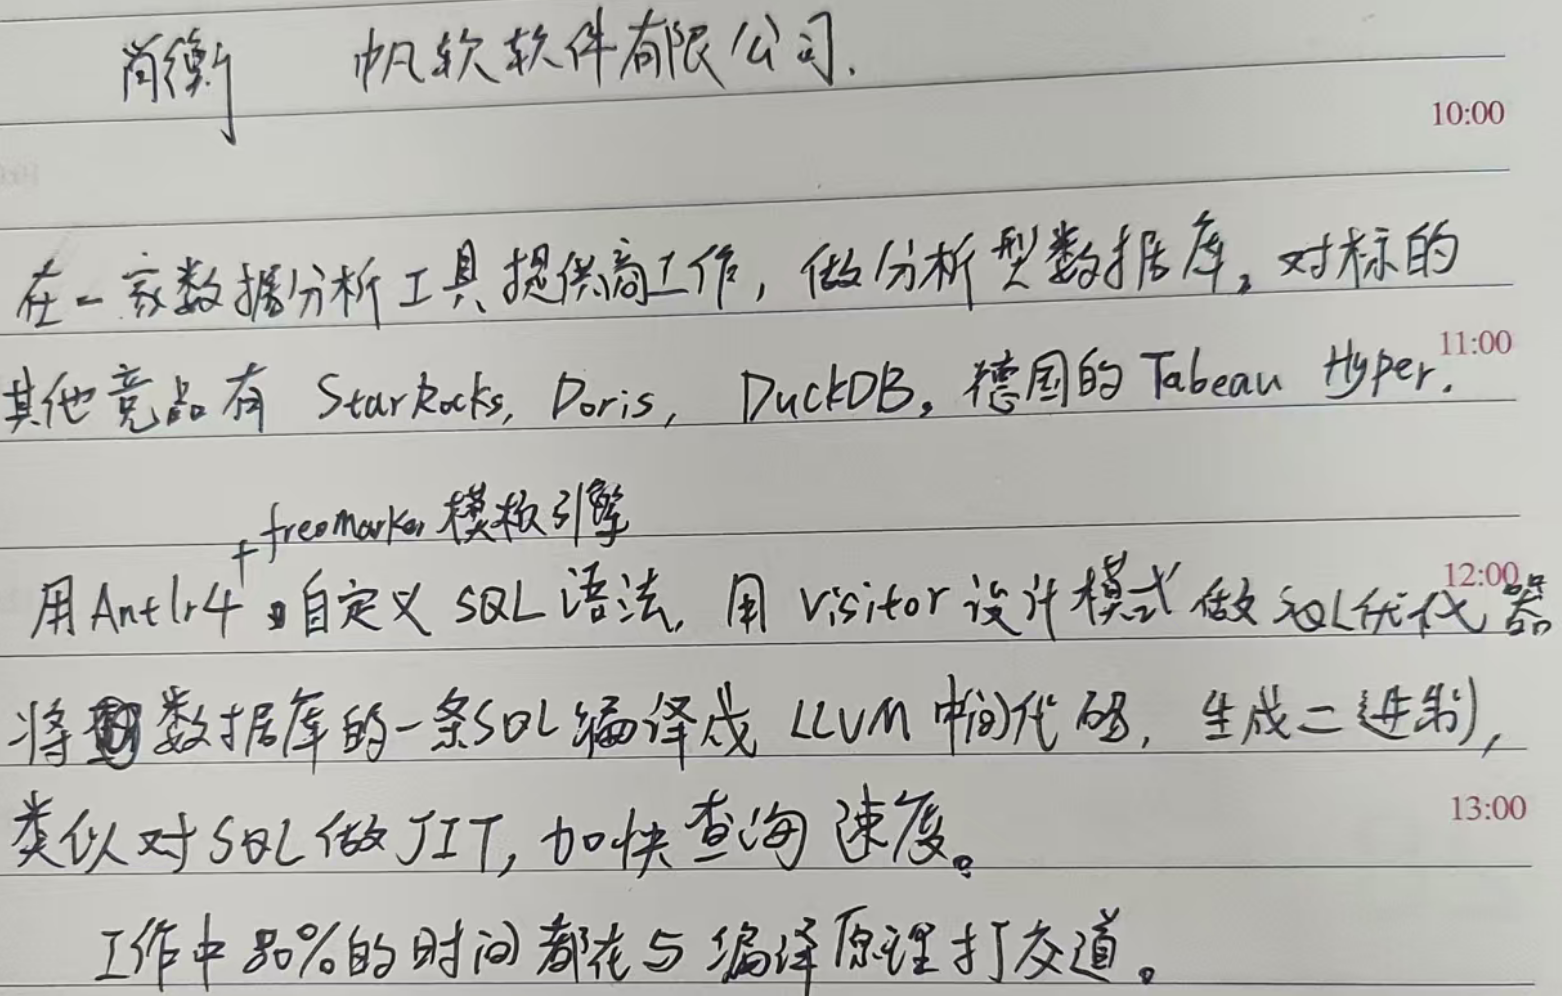 尚衡 帆软软件有限公司.
10:00
在一家数据分析工具提供商工作, 做分析型数据库。对标的
11:00
其他竞品有 StarRocks, Doris, DuckDB。德国的 Tabeau Hyper.
+ freemarker 模板引擎
12:00
用Antlr4 自定义 SQL 语法, 用 visitor 设计模式做 SQL优化器
将 数据库的一条SQL编译成 LLVM 中间代码, 生成二进制,
13:00
类似对SQL做JIT, 加快查询速度。
工作中80%的时间都在与编译原理打交道。